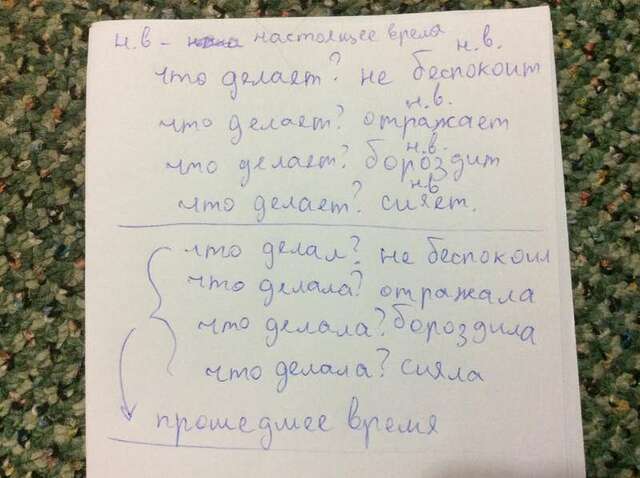 н.в - настоящее время
н.в.
что делает? не беспокоит
н.в.
что делает? отражает
н.в.
что делает? бороздит
н.в
что делает? сияет.
что делал? не беспокоил
что делала? отражала
что делала? бороздила
что делала? сияла
прошедшее время